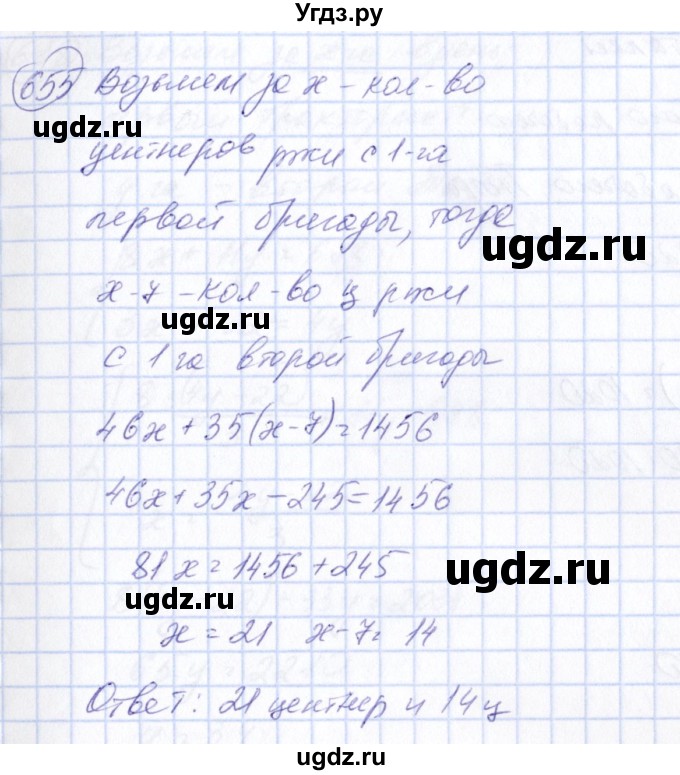 Угдз.ру
655 Возьмем за x - кол-во
ugdz.ru
центнеров ржи с 1-га
первой бригады, тогда
ugdz.ru
x-7 - кол-во ц ржи
ugdz.ru
с 1 га второй бригады
46x + 35(x-7) = 1456
46x + 35x - 245 = 1456
81x = 1456 + 245
ugdz.ru
ugdz.ru
x = 21 x-7 = 14
Ответ: 21 центнер и 14 ц
ugdz.ru